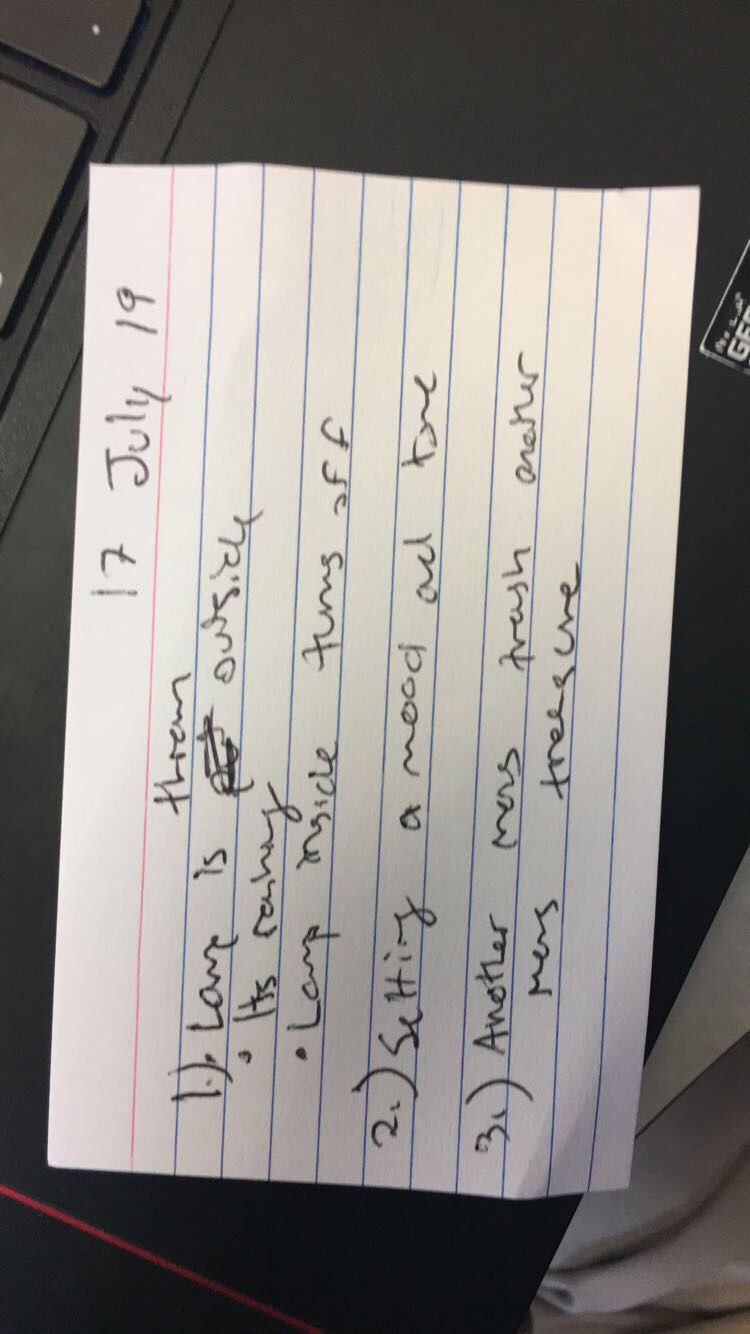 17 July 19
thrown
1.) • Lamp is outside
• Its raining
• Lamp inside turns off
2.) Setting a mood and tone
3.) Another mans trash another
mans treasure